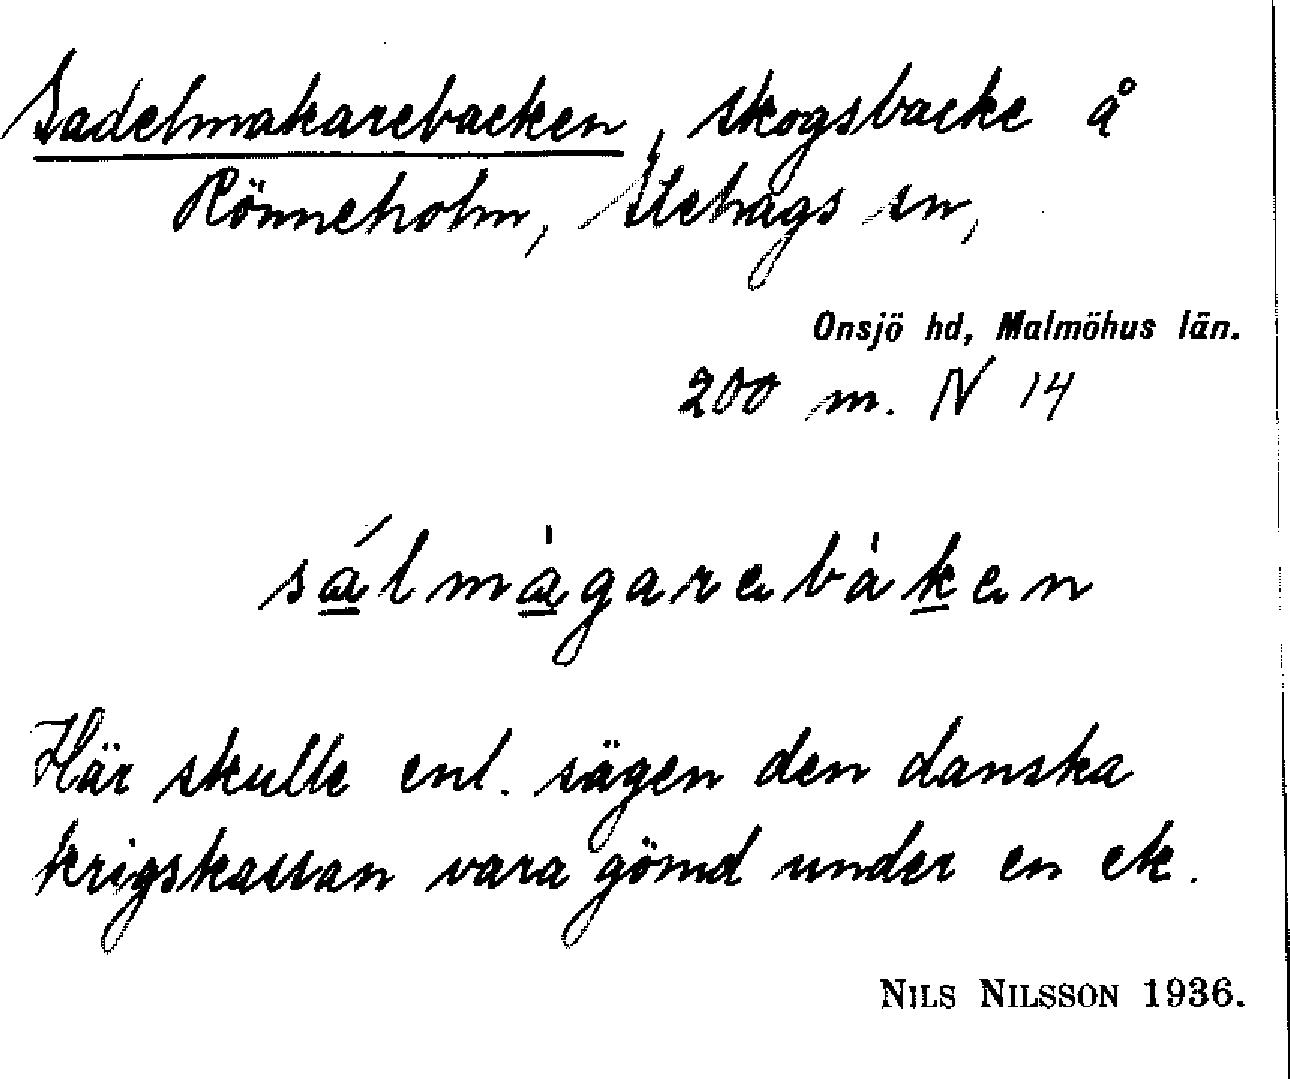 Sadelmakarebacken, skogsbacke å
Rönneholm, Stehags sn,
Onsjö hd, Malmöhus län.
200 m. N 14
sálmàgarebàken
Här skulle enl. sägen den danska
krigskassan vara gömd under en ek.
NILS NILSSON 1936.